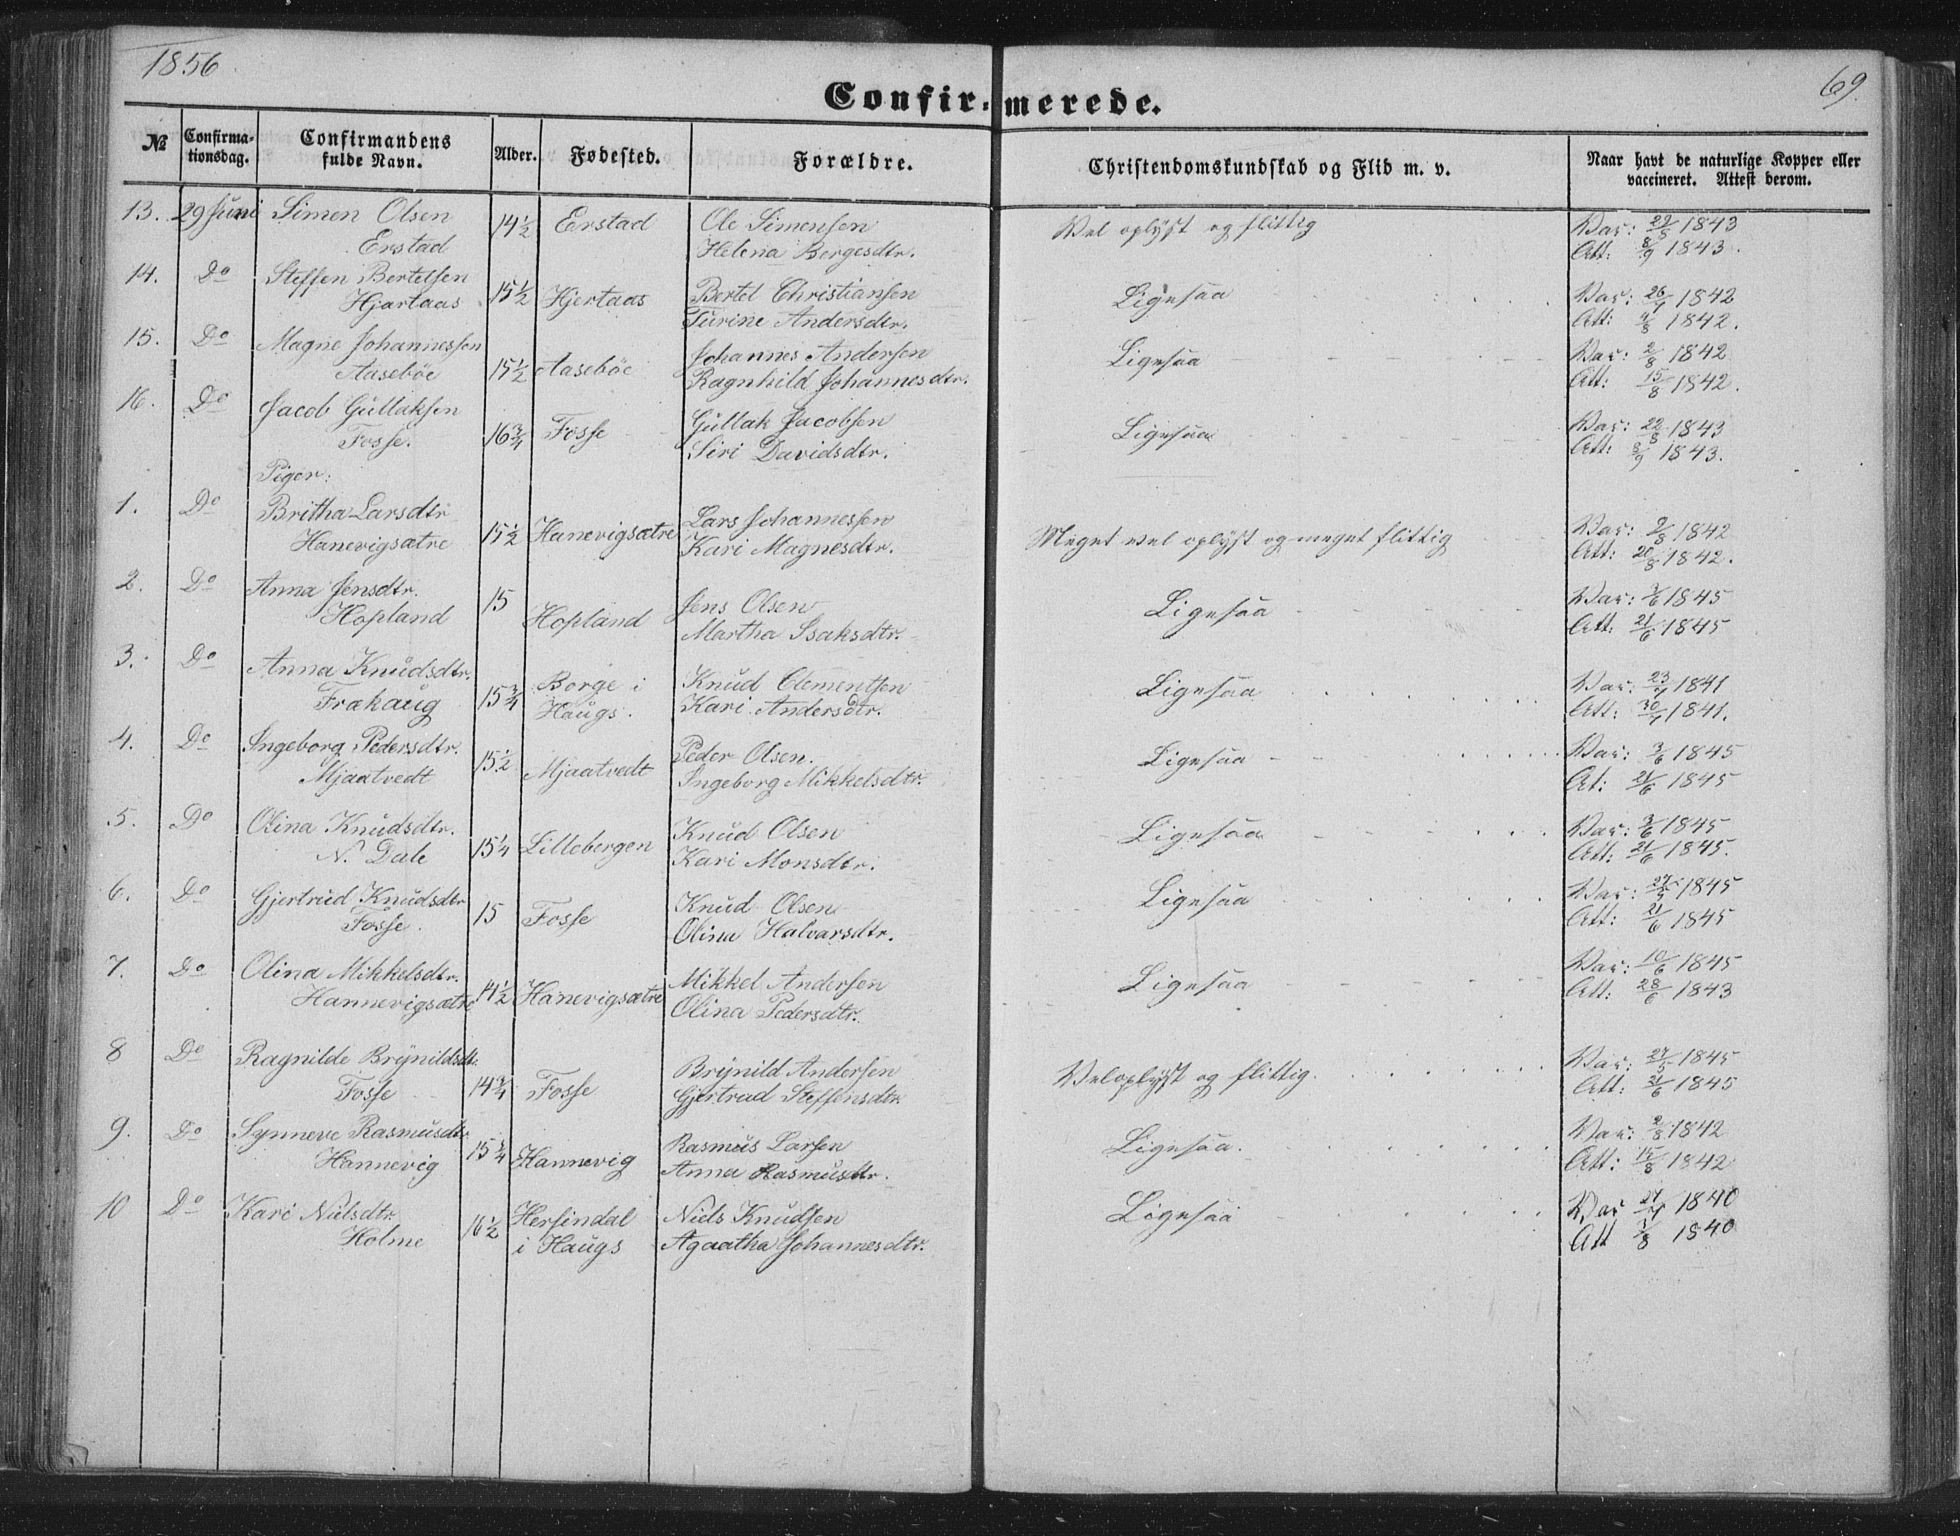 1856
69.
Confirmerede.
№ Confirmationsdag. Confirmandens fulde Navn. Alder. Fødested. Forældre. Christendomskundskab og Flid m. v. Naar havt de naturlige Kopper eller vaccineret. Attest derom.
13. 29 Juni Simen Olsen 14½ Erstad Ole Simensen Vel oplyst og flittig Vac: 29/5 1843
Erstad Helena Børgesdtr. Att: 8/9 1843.
14. Do Steffen Bertelsen 15½ Hjertaas Bertel Christiansen Ligesaa Vac: 26/7 1842
Hjartaas Turine Andersdtr. Att: 4/8 1842.
15. Do Magne Johannessen 15½ Aaseböe Johannes Andersen Ligesaa Vac: 2/8 1842
Aaseböe Ragnhild Johannesdtr. Att: 15/8 1842.
16. Do Jacob Gullaksen 16¾ Fosse Gullak Jacobsen Ligesaa Vac: 22/8 1843
Fosse. Siri Davidsdtr. Att: 8/9 1843.
Piger:
1. Do Britha Larsdtr 15½ Hanevigsætre Lars Johannessen Meget vel oplyst og meget flittig Vac: 2/8 1842
Hanevigsætre Kari Magnesdtr. Att: 20/8 1842.
2. Do Anna Jensdtr. 15 Hopland Jens Olsen Ligesaa Vac: 3/6 1845
Hopland Martha Isaksdtr. Att: 21/6 1845
3. Do Anna Knudsdtr. 15¾ Borge i Knud Clementsen Ligesaa Vac: 23/7 1841
Frakaug Haugs. Kari Andersdtr. Att: 30/7 1841.
4. Do Ingeborg Pedersdtr. 15½ Mjaatvedt Peder Olsen. Ligesaa Vac: 3/6 1845
Mjaatvedt Ingeborg Mikkelsdtr. At: 21/6 1845
5. Do Olina Knudsdtr. 15¼ Lillebergen Knud Olsen Ligesaa Vac: 3/6 1845
N. Dale Kari Monsdtr. Att: 21/6 1845.
6. Do Gjertrud Knudsdtr 15 Fosse Knud Olsen Ligesaa Vac: 27/5 1845
Fosse. Olina Halvarsdtr. Att: 21/6 1845
7. Do Olina Mikkelsdtr. 14½ Hanevigsætre Mikkel Andersen Ligesaa Vac: 10/6 1845
Hannevigsætre Olina Pedersdtr. Att: 28/6 1843
8 Do Ragnilde Brynildsdt: 14¾ Fosse Brynild Andersen Vel oplyst og flittig. Vac: 27/5 1845
Fosse Gjertrud Steffensdtr. Att: 21/6 1845
9. Do Synneve Rasmusdtr 15¾ Hannevig Rasmus Larsen Ligesaa. Vac: 2/8 1842
Hannevig Anna Rasmusdtr. Att: 15/8 1842
10 Do Kari Nilsdtr. 16½ Hersindal Niels Knudsen Ligesaa Vac 27/7 1840
Holme i Haugs Agaatha Johannesdtr. Att 1/8 1840